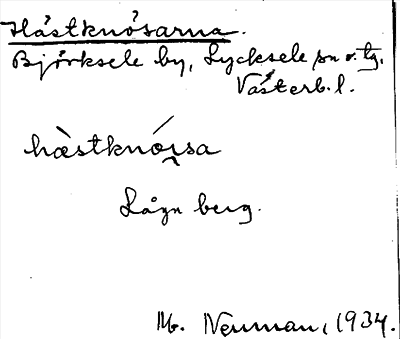 Hästknösarna.
Björksele by, Lycksele sn o. tg.
Västerb. l.
hæ̀stknó̱ɽsa
Lågn berg.
M. Neuman, 1934.